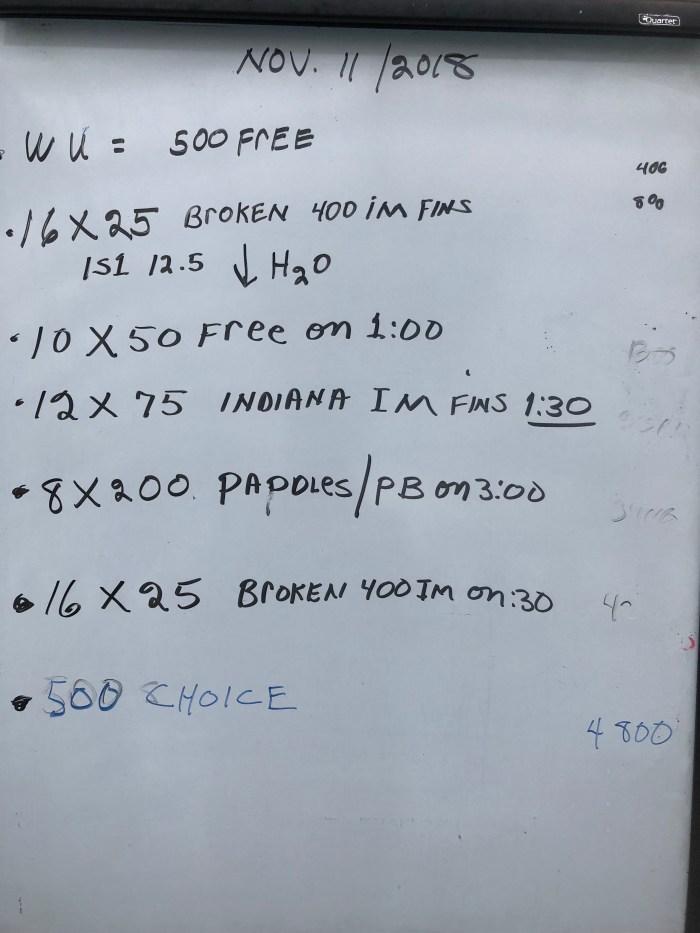 Quartet
NOV. 11/2018
WU = 500 FREE
400
800
• 16 X 25 BROKEN 400 IM FINS
1S1 12.5 ↓ H2O
• 10 X 50 Free on 1:00
• 12 X 75 INDIANA IM FINS 1:30
• 8 X 200 PADDLES/PB on 3:00
• 16 X 25 BROKEN 400 IM on :30
• 500 CHOICE
4800